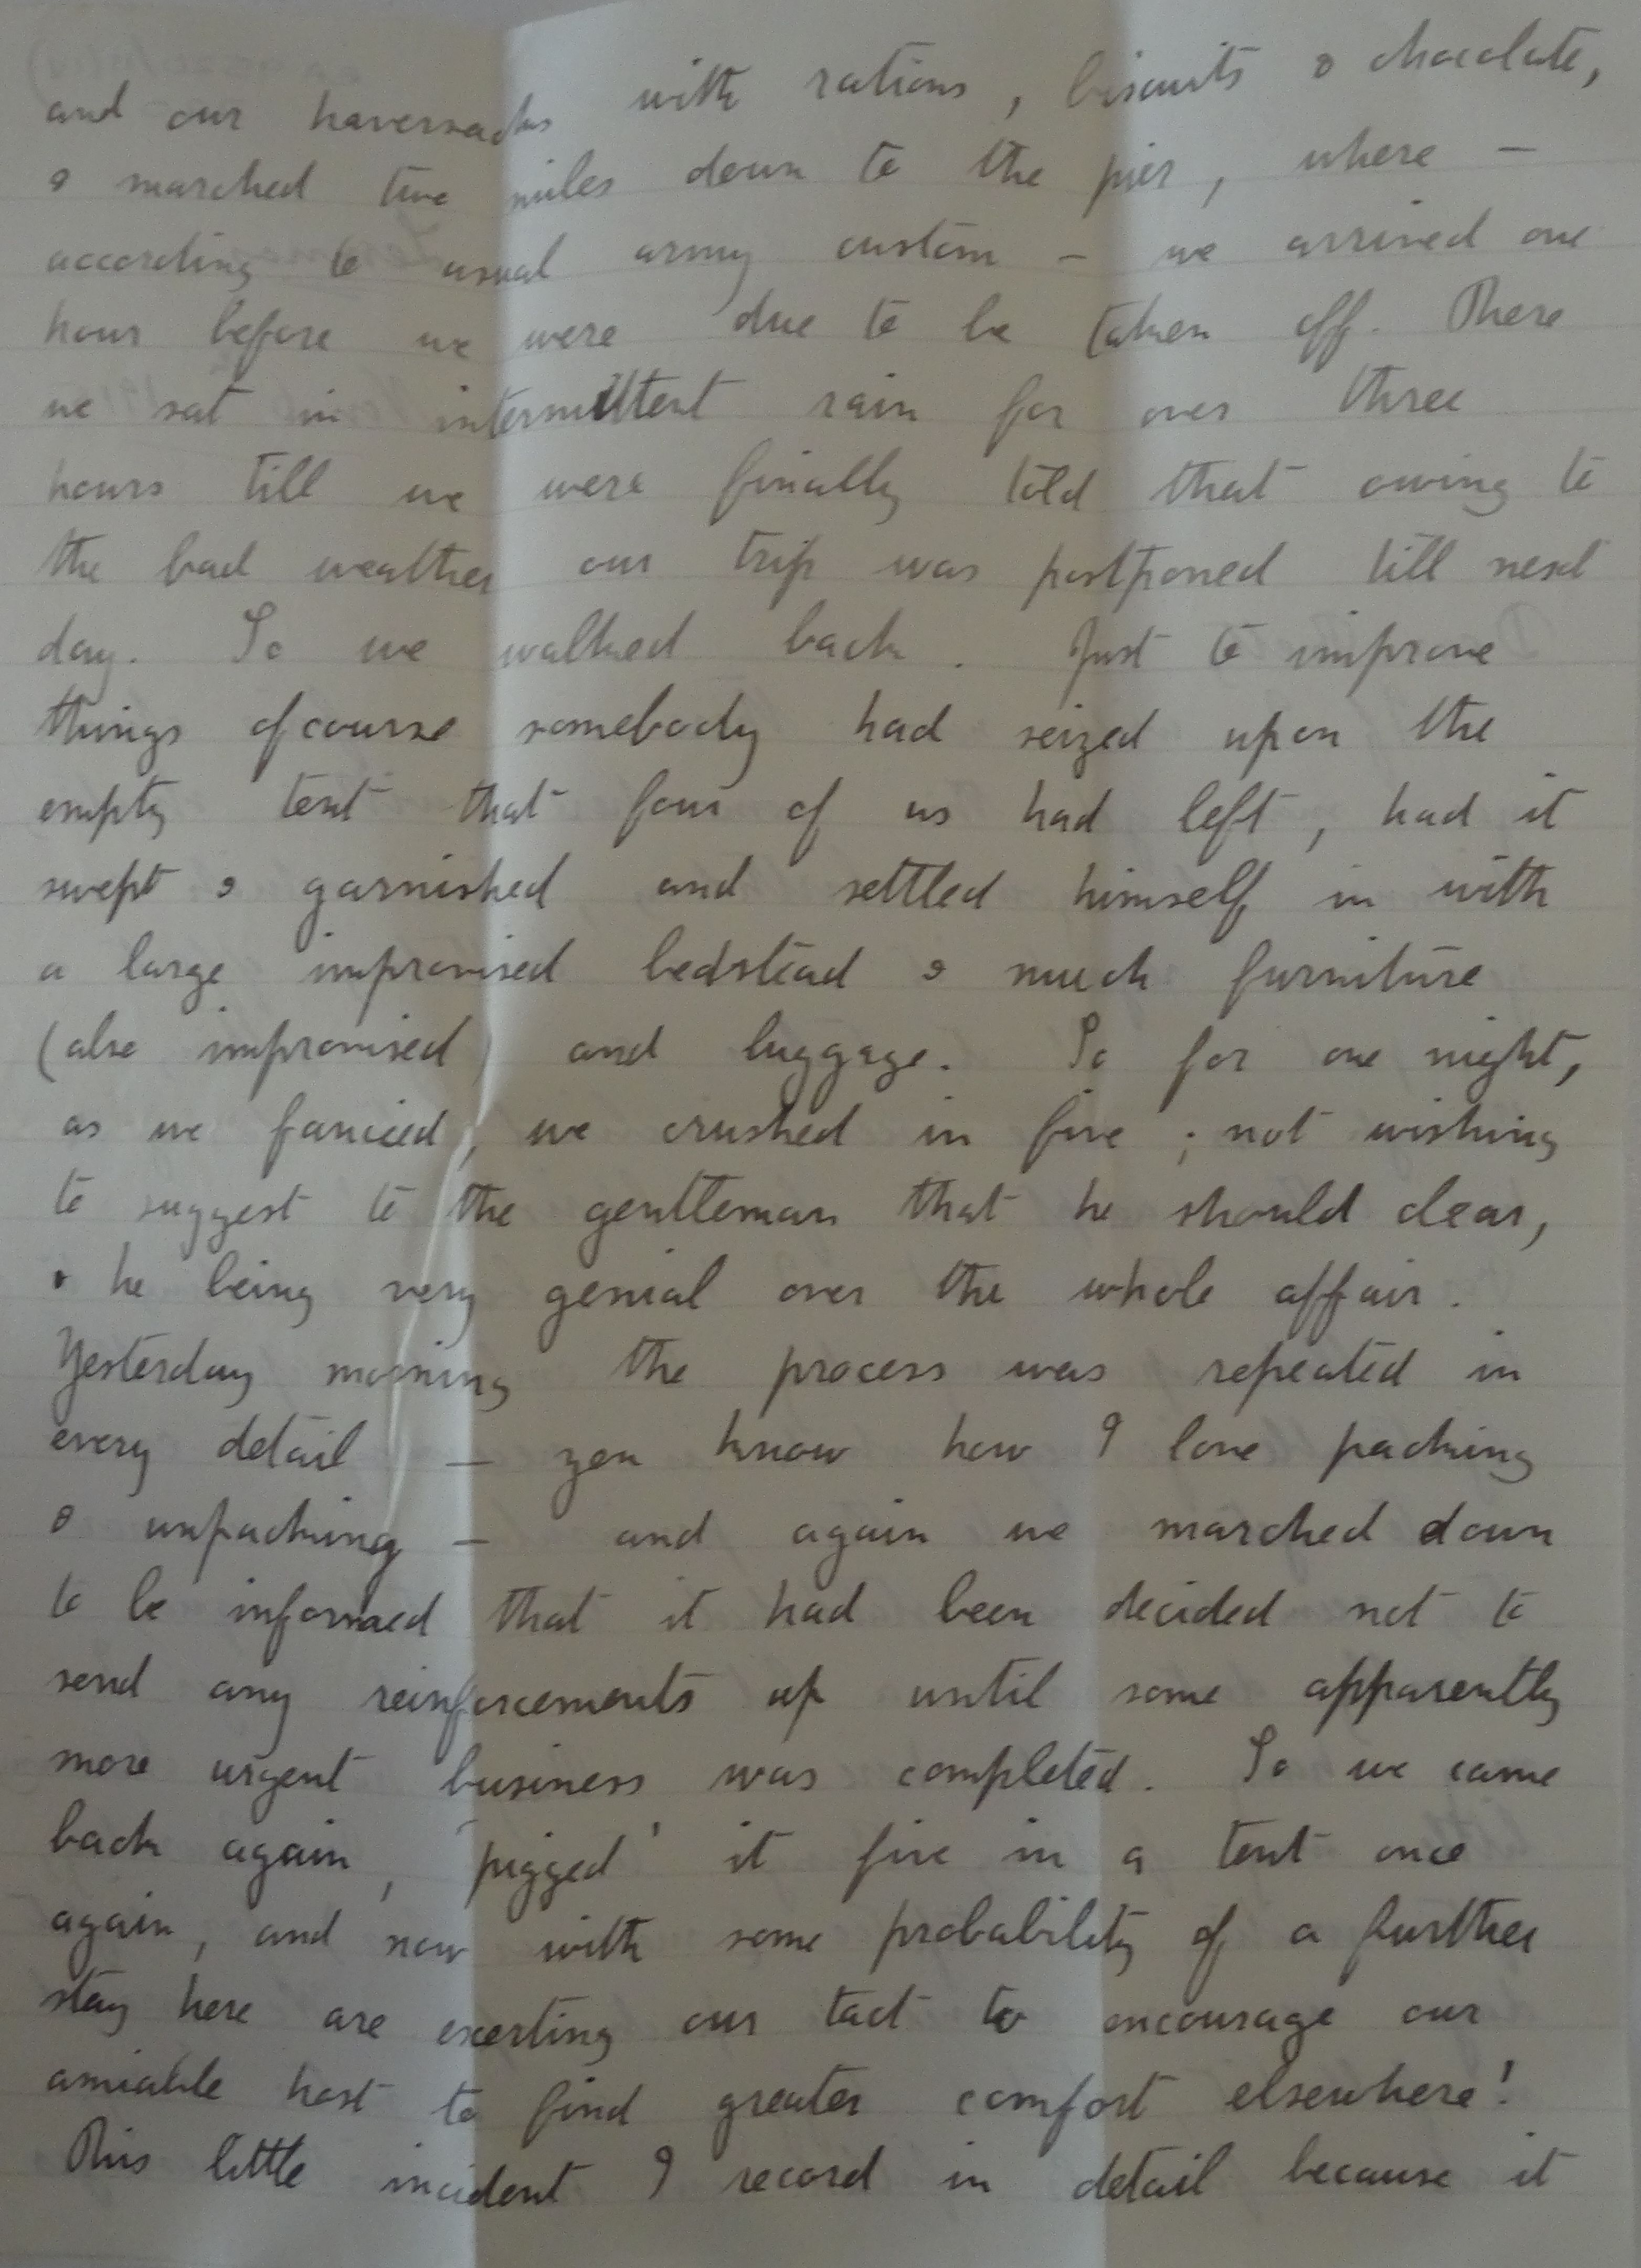 and our haversacks with rations, biscuits & chocolate,
& marched two miles down to the pier, where –
according to usual army custom – we arrived one
hour before we were due to be taken off. There
we sat in intermittent rain for over three
hours till we were finally told that owing to
the bad weather our trip was postponed till next
day. So we walked back. Just to improve
things ofcourse somebody had seized upon the
empty tent that four of us had left, had it
swept & garnished and settled himself in with
a large improvised bedstead & much furniture
(also improvised) and luggage. So for one night,
as we fancied, we crushed in five; not wishing
to suggest to the gentleman that he should clear,
& he being very genial over the whole affair.
Yesterday morning the process was repeated in
every detail – you know how I love packing
& unpacking – and again we marched down
to be informed that it had been decided not to
send any reinforcements up until some apparently
more urgent business was completed. So we came
back again, 'pigged' it five in a tent once
again, and now with some probability of a further
stay here are exerting our tact to encourage our
amiable host to find greater comfort elsewhere!
This little incident I record in detail because it